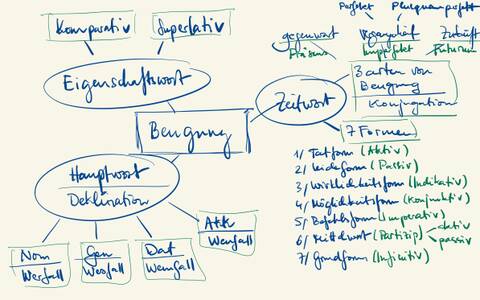 Komparativ
Superlativ
Eigenschaftswort
Beugung
Hauptwort
Deklination
Nom
Werfall
Gen
Wesfall
Dat
Wemfall
Akk
Wenfall
Zeitwort
Perfekt
Plusquamperfekt
gegenwart
Präsens
Imperfekt
Zukunft
Futurum
3 arten von
Beugung
Konjugation
7 Formen
1/ Tatform (Aktiv)
2/ Leideform (Passiv)
3/ Wirklichkeitsform (Indikativ)
4/ Möglichkeitsform (Konjunktiv)
5/ Befehlsform (Imperativ)
6/ Mittelwort (Partizip)
aktiv
passiv
7/ Grundform (Infinitiv)